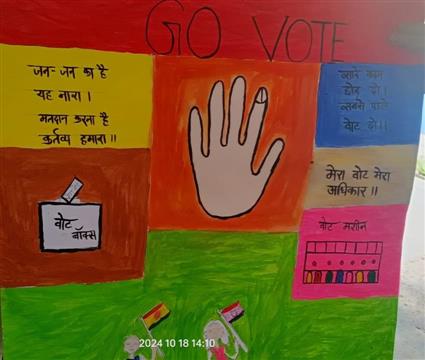 GO VOTE
जन-जन का है
यह नारा ।
मतदान करना है
कर्तव्य हमारा ॥
सारे काम
छोड़ दो ।
सबसे पहले
वोट दो ॥
मेरा वोट मेरा
अधिकार ॥
वोट
बॉक्स
वोट मशीन
2024 10 18 14:10